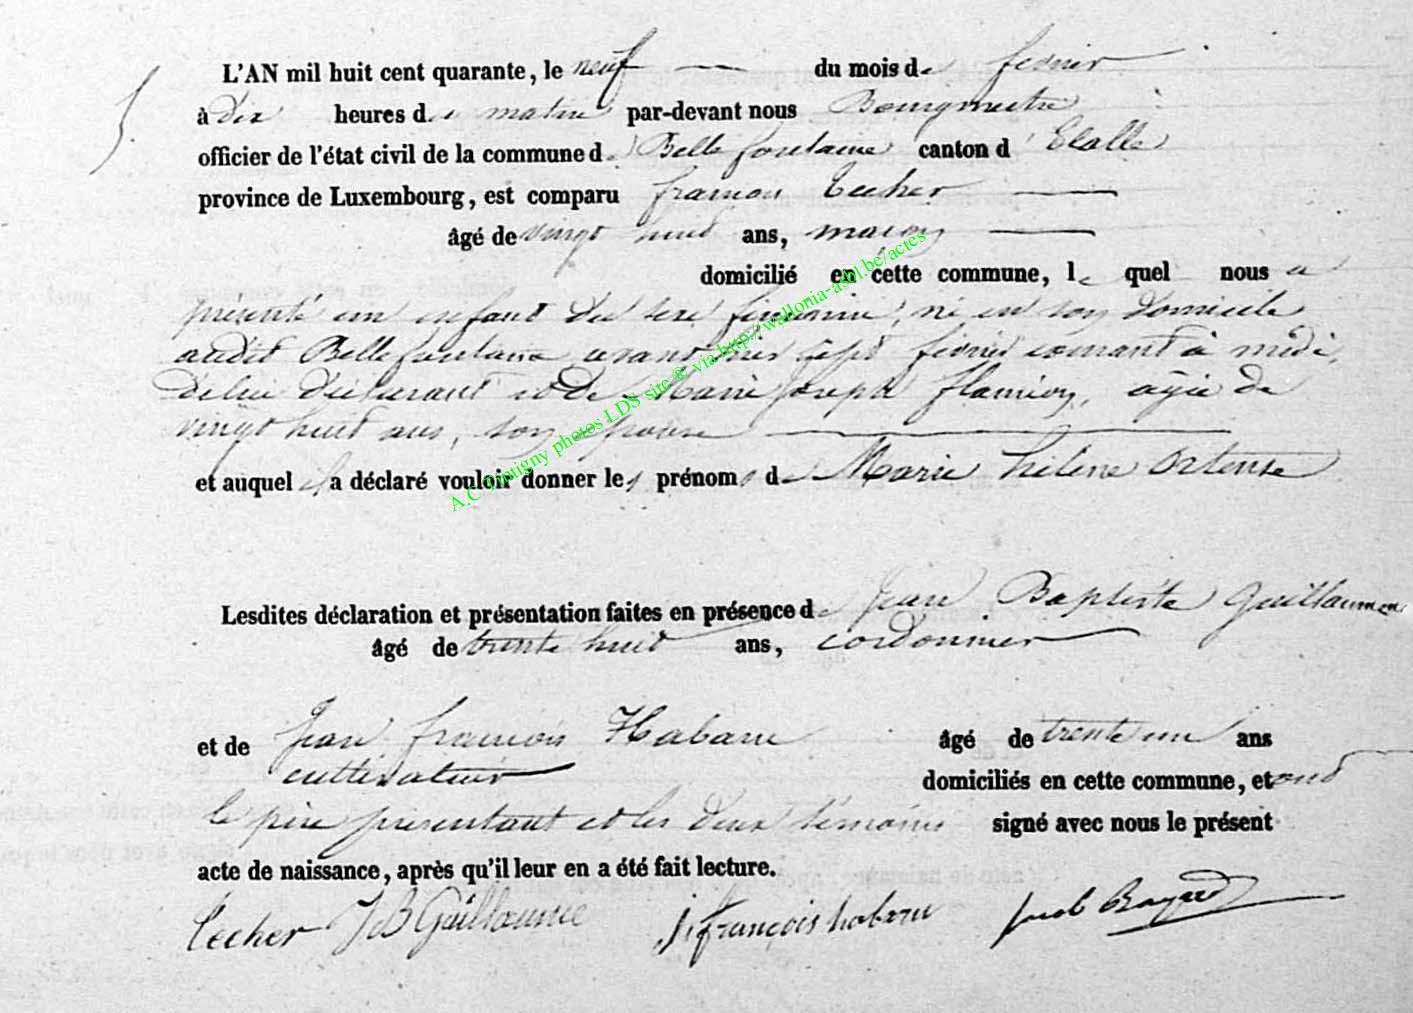 5.
L'AN mil huit cent quarante, le neuf du mois de fevrier
à dix heures du matin par-devant nous Bourgmestre
officier de l'état civil de la commune de Bellefontaine canton d'Etalle
province de Luxembourg, est comparu françois Techer
âgé de vingt huit ans, maçon
domicilié en cette commune, lequel nous a
présenté un enfant du sexe feminin, né en son domicile
audit Bellefontaine avant hier sept fevrier courant à midi,
de lui déclarant et de Marie Joseph flamion, agée de
vingt huit ans, son épouse
et auquel il a déclaré vouloir donner les prénoms de Marie hélène Ortense
Lesdites déclaration et présentation faites en présence de Jean Baptiste Guillaume
âgé de trente huit ans, cordonnier
et de Jean françois Habaru âgé de trente un ans
cultivateur domiciliés en cette commune, et ont
le père présentant et les deux témoins signé avec nous le présent
acte de naissance, après qu'il leur en a été fait lecture.
Techer JB Guillaume j. françois habaru
A.C Tintigny photos LDS site ® via http://wallonia-asbl.be/actes